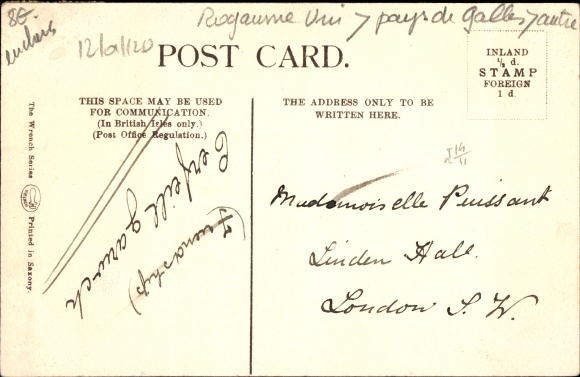 8E
enchers
12/01/20
Royaume Uni > pays de Galles > autre
POST CARD.
INLAND
½ d.
STAMP
FOREIGN
1 d.
THIS SPACE MAY BE USED
FOR COMMUNICATION.
(In British Isles only.)
(Post Office Regulation.)
THE ADDRESS ONLY TO BE
WRITTEN HERE.
The Wrench Series
Printed in Saxony.
(Friendship)
Mademoiselle Puissant
Linden Hall.
London S. W.